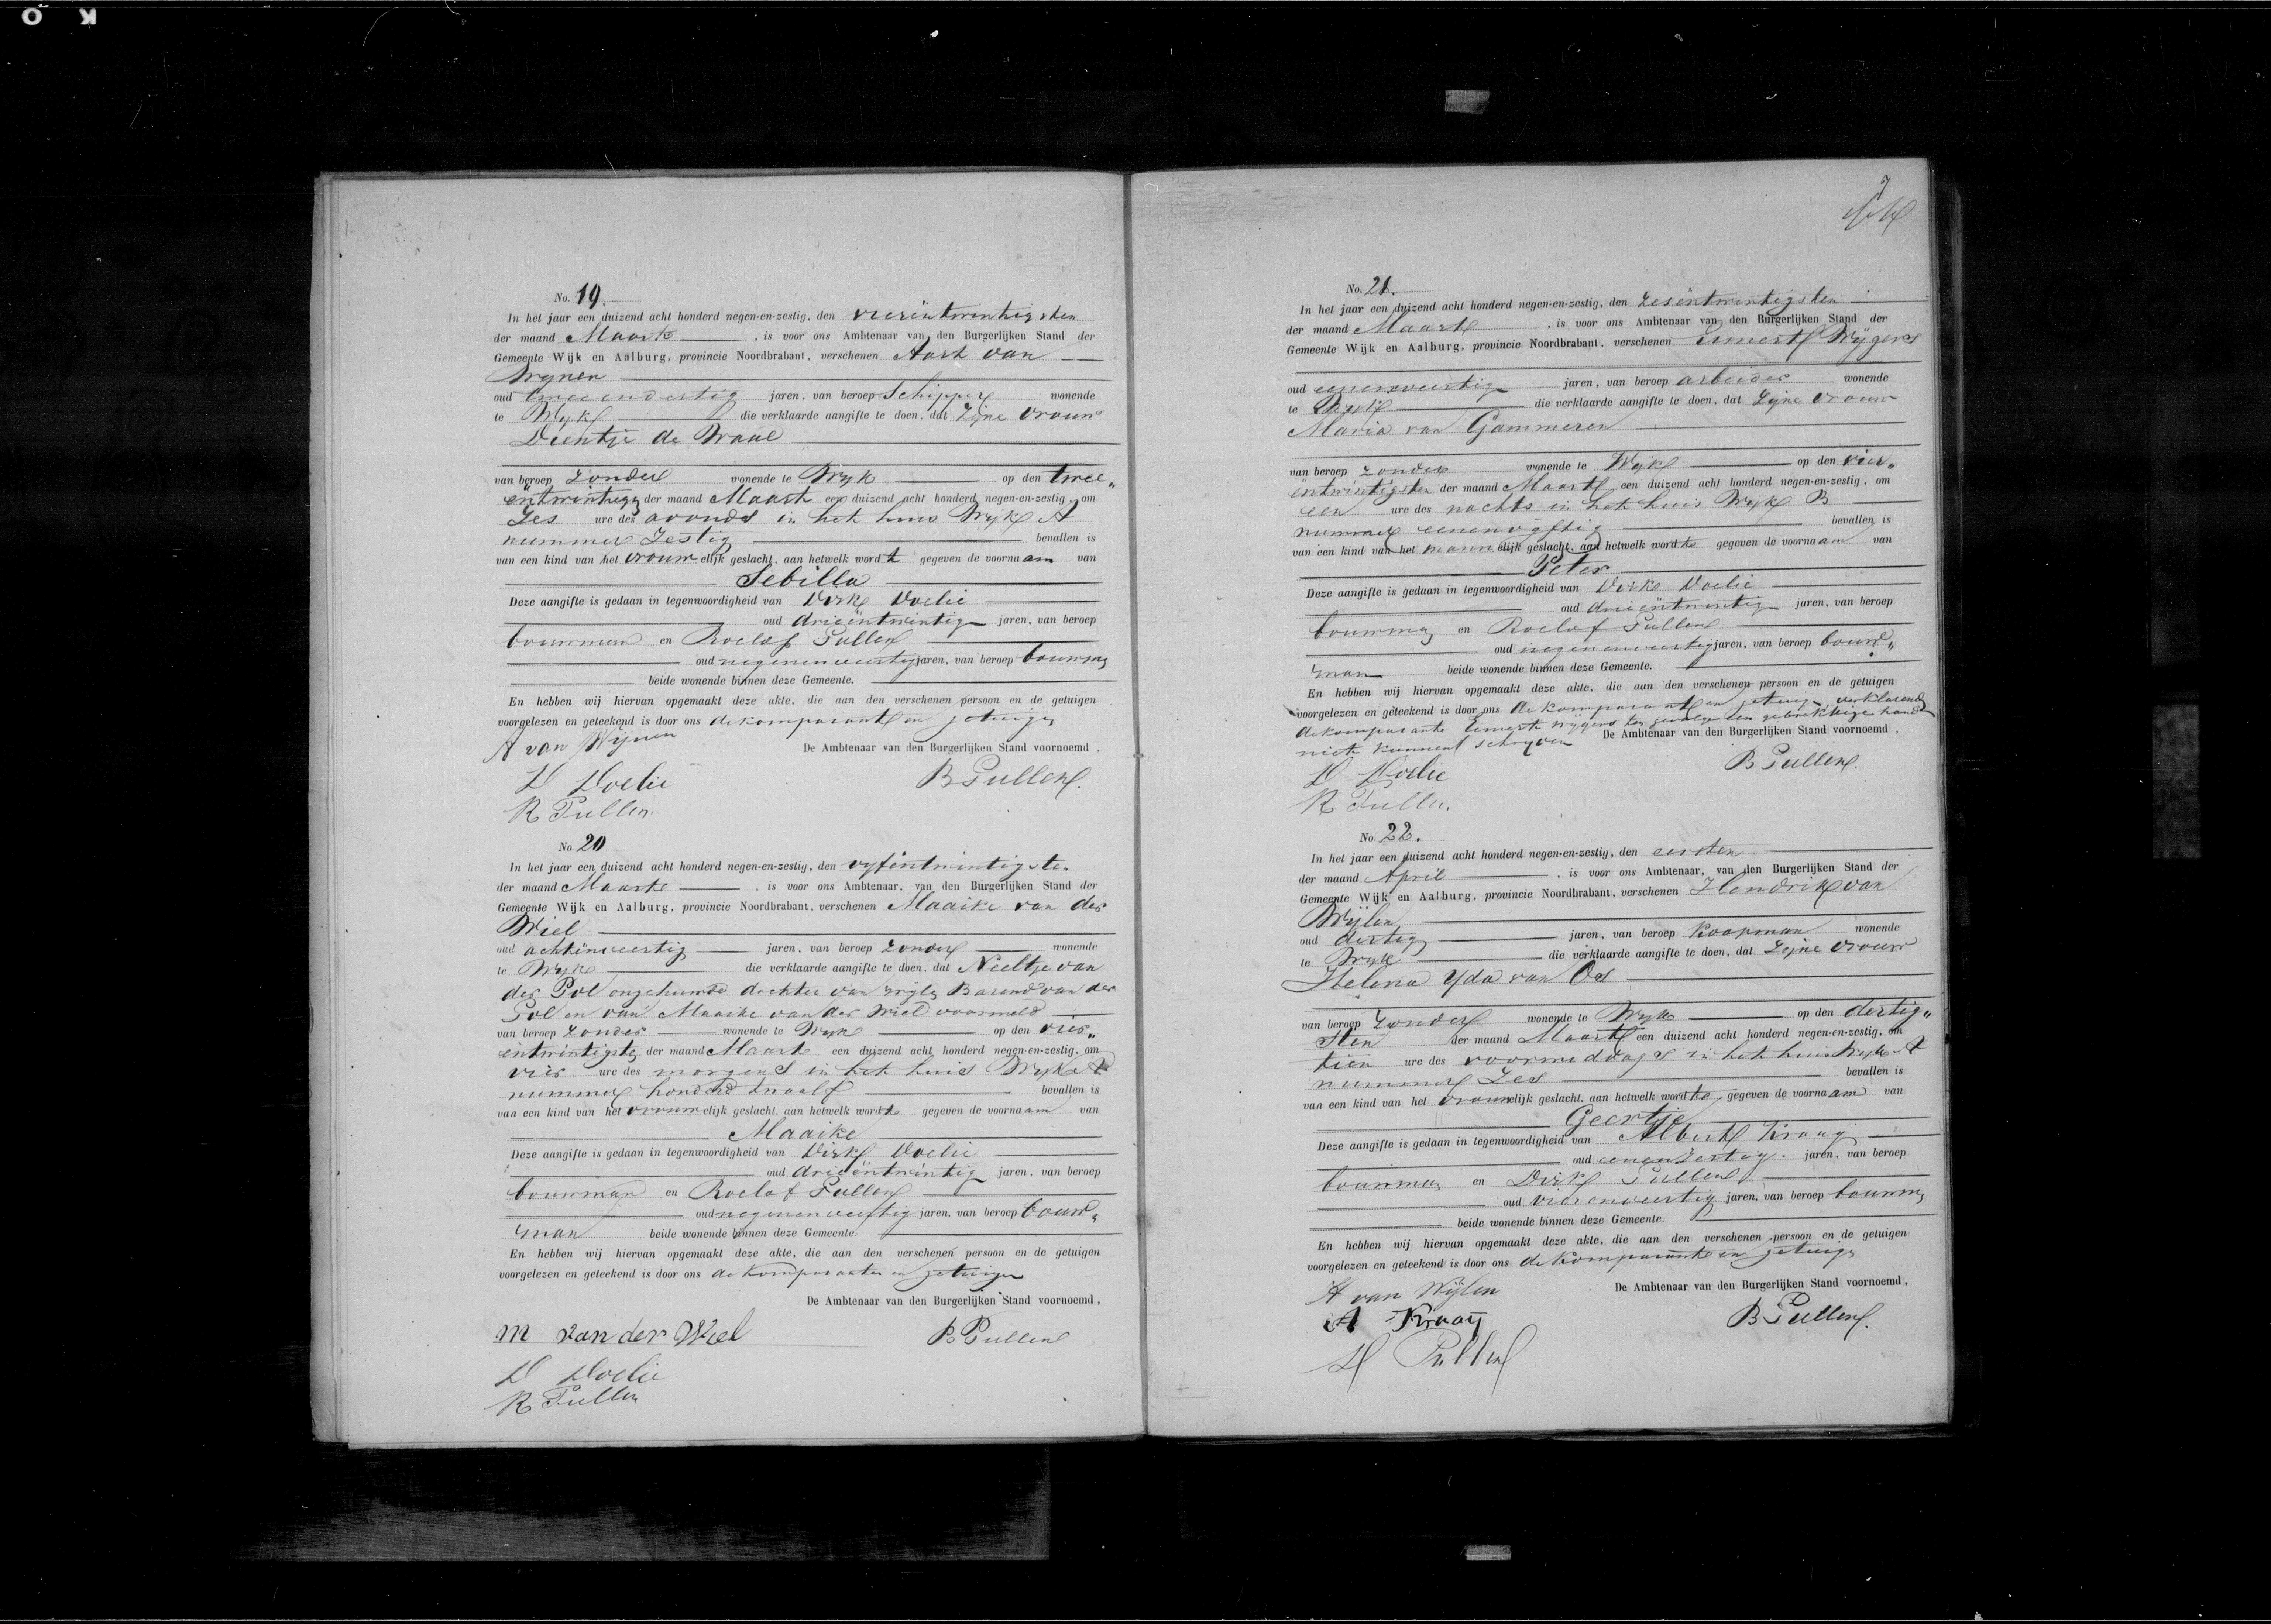 No. 19.
In het jaar een duizend acht honderd negen-en-zestig, den vierentwintigsten
der maand Maart , is voor ons Ambtenaar van den Burgerlijken Stand der
Gemeente Wijk en Aalburg, provincie Noordbrabant, verschenen Aart van
Wynen
oud tweeendertig jaren, van beroep Schipper wonende
te Wyk die verklaarde aangifte te doen, dat Zyne vrouw
Dientje de Waal
van beroep zonder wonende te Wyk op den twee„
entwintigs der maand Maart een duizend acht honderd negen-en-zestig, om
Zes ure des avonds in het huis Wijk A
nummer Zestig bevallen is
van een kind van het vrouwelijk geslacht, aan hetwelk wordt gegeven de voornaam van
Sebilla
Deze aangifte is gedaan in tegenwoordigheid van Dirk Doelie
oud drieëntwintig jaren, van beroep
bouwman en Roelof Pullen
oud negenenveertig jaren, van beroep bouwm
beide wonende binnen deze Gemeente.
En hebben wij hiervan opgemaakt deze akte, die aan den verschenen persoon en de getuigen
voorgelezen en geteekend is door ons de komparant en getuigen
A van Wijnen
De Ambtenaar van den Burgerlijken Stand voornoemd,
D Doelie
B Pullen.
R Pullen.
No. 20
In het jaar een duizend acht honderd negen-en-zestig, den vyfentwintigsten
der maand Maart , is voor ons Ambtenaar, van den Burgerlijken Stand der
Gemeente Wijk en Aalburg, provincie Noordbrabant, verschenen Maaike van der
Wiel
oud achtenveertig jaren, van beroep zonder wonende
te Wyk die verklaarde aangifte te doen, dat Neeltje van
der Pol ongehuwde dochter van wyle Barend van der
Pol en van Maaike van der Wiel voormeld
van beroep zonder wonende te Wyk op den vier„
entwintigste der maand Maart een duizend acht honderd negen-en-zestig, om
vier ure des morgens in het huis Wyk A
nummer honderd twaalf bevallen is
van een kind van het vrouwelijk geslacht, aan hetwelk wordt gegeven de voornaam van
Maaike
Deze aangifte is gedaan in tegenwoordigheid van Dirk Doelie
oud drieëntwintig jaren, van beroep
bouwman en Roelof Pullen
oud negenenveertig jaren, van beroep bouw„
man beide wonende binnen deze Gemeente
En hebben wij hiervan opgemaakt deze akte, die aan den verschenen persoon en de getuigen
voorgelezen en geteekend is door ons de komparante en getuigen
De Ambtenaar van den Burgerlijken Stand voornoemd,
M van der Wiel
B Pullen
D Doelie
R Pullen
7
No. 21.
In het jaar een duizend acht honderd negen-en-zestig, den zesentwintigsten
der maand Maart , is voor ons Ambtenaar van den Burgerlijken Stand der
Gemeente Wijk en Aalburg, provincie Noordbrabant, verschenen Ewert Wygers
oud eenenveertig jaren, van beroep arbeider wonende
te Wyk die verklaarde aangifte te doen, dat Zyne vrouw
Maria van Gammeren
van beroep zonder wonende te Wijk op den vier„
entwintigsten der maand Maart een duizend acht honderd negen-en-zestig, om
een ure des nachts in het huis Wyk B
nummer eenenvyftig bevallen is
van een kind van het mannelijk geslacht, aan hetwelk wordt gegeven de voornaam van
Peter
Deze aangifte is gedaan in tegenwoordigheid van Dirk Doelie
oud drieëntwintig jaren, van beroep
bouwman en Roelof Pullen
oud negenenveertig jaren, van beroep bouw„
man beide wonende binnen deze Gemeente.
En hebben wij hiervan opgemaakt deze akte, die aan den verschenen persoon en de getuigen
voorgelezen en geteekend is door ons de komparant en getuigen, verklarende
de komparant Ewert Wygers ten gevolge een gebrekkige hand
niet kunnent schryven
De Ambtenaar van den Burgerlijken Stand voornoemd,
D Doelie
B Pullen.
R Pullen.
No. 22.
In het jaar een duizend acht honderd negen-en-zestig, den eersten
der maand April , is voor ons Ambtenaar, van den Burgerlijken Stand der
Gemeente Wijk en Aalburg, provincie Noordbrabant, verschenen Hendrik van
Wijlen
oud dertig jaren, van beroep Koopman wonende
te Wyk die verklaarde aangifte te doen, dat Zyne vrouw
Helena Yda van Os
van beroep zonder wonende te Wyk op den dertig„
sten der maand Maart een duizend acht honderd negen-en-zestig, om
tien ure des voormiddags in het huis Wyk A
nummer Zes bevallen is
van een kind van het vrouwelijk geslacht, aan hetwelk wordt gegeven de voornaam van
Geertje
Deze aangifte is gedaan in tegenwoordigheid van Albert Kraay
oud eenenzestig jaren, van beroep
bouwman en Dirk Pullen
oud vierenveertig jaren, van beroep bouwm
beide wonende binnen deze Gemeente.
En hebben wij hiervan opgemaakt deze akte, die aan den verschenen persoon en de getuigen
voorgelezen en geteekend is door ons de komparante en getuige
H van Wijlen
De Ambtenaar van den Burgerlijken Stand voornoemd,
A Kraay
B Pullen.
D Pullen